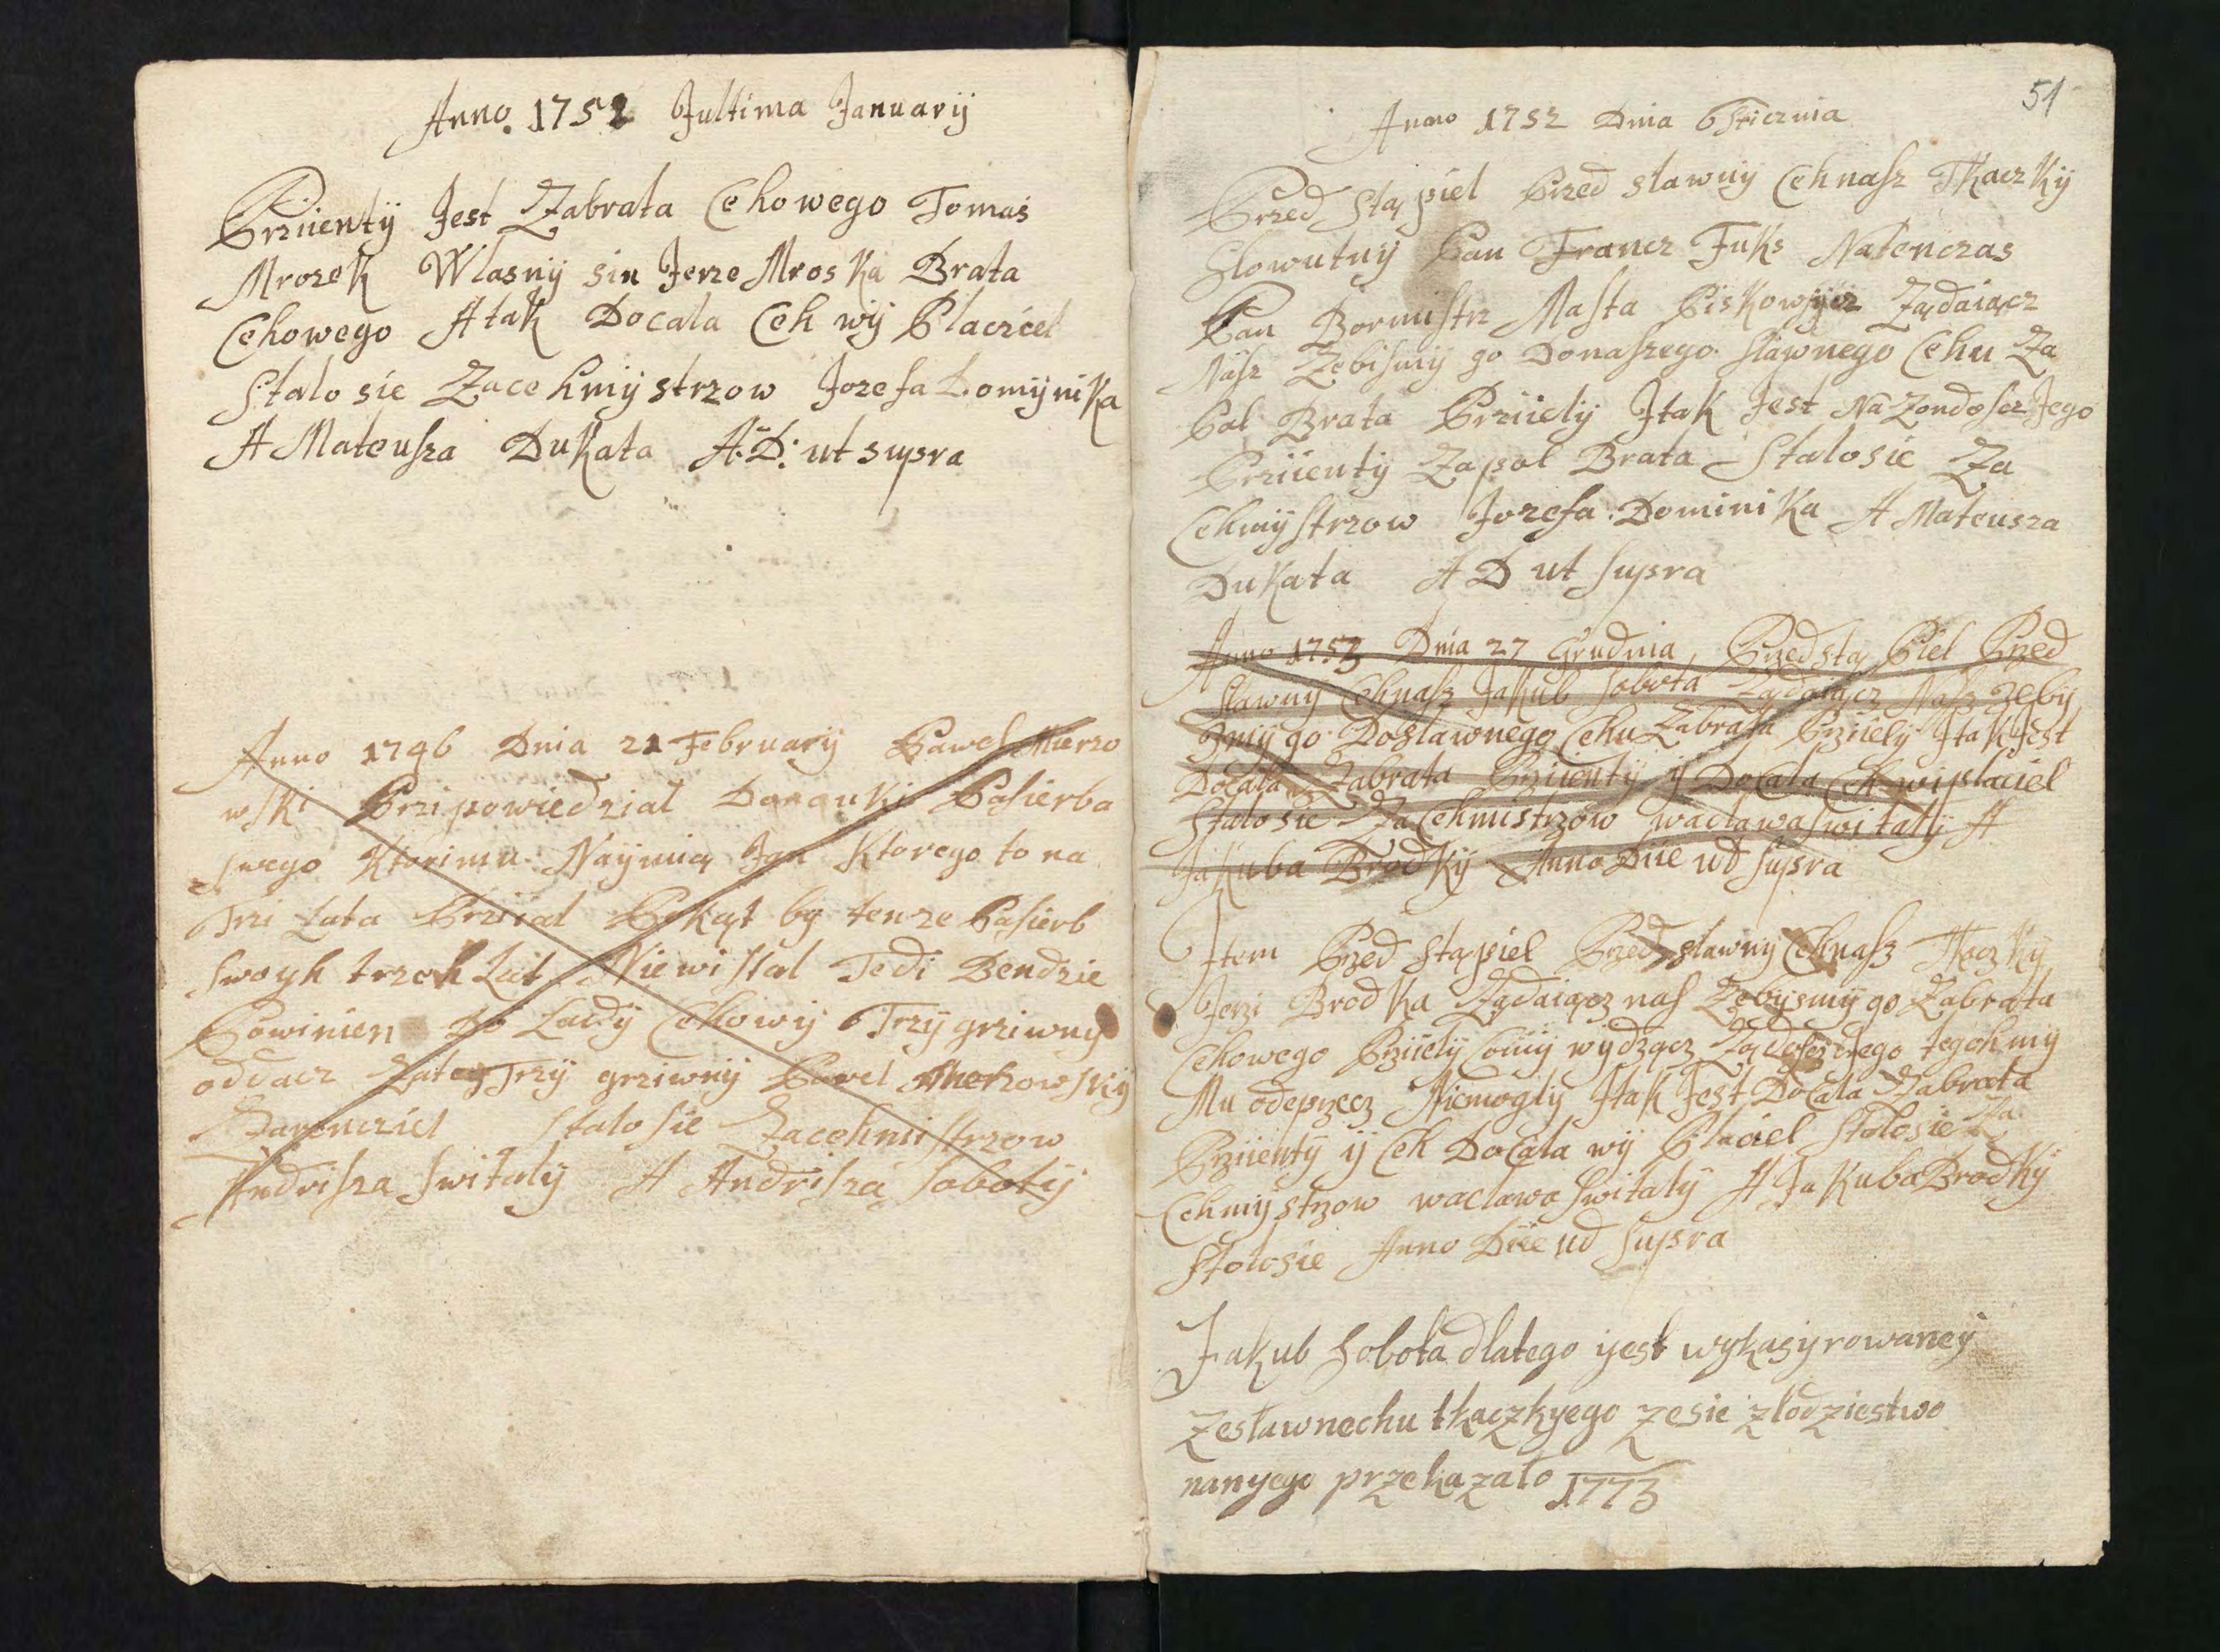 Anno 1752 Jultima Januarÿ
Prziientÿ Jest Zabrata Cehowego Tomas
Mrozek Wlasnÿ sin Jerze Mroska Brata
Cehowego A tak Docala Ceh wÿ Placiel
Stalo sie Zacehmÿstrzow Jozefa Domÿnika
A Mateusza Dukata A: D: ut supra
Anno 1746 Dnia 21 Februarÿ Pawel Mierzo
wski Przipowiedzial Donauki Pasierba
swego Ktorimu Naÿmią Jan Ktorego to na
Trzi Lata Prziial Pokąt by tenze Pasierb
swoyh trzeh Lat Niewistal Tedi Bendzie
Powinien do Ladÿ Cehowÿ Trzÿ grziwnÿ
oddacz Zateg Trzÿ grziwnÿ Pawel
Zarencziel Stalo sie Zacehmistrzow
Andrisza Switalÿ A Andrisza Sobotÿ
51
Anno 1752 Dnia 6 Sticznia
Przed stąpiel Przed slawnÿ Ceh nasz Tkaczkÿ
Slowutnÿ Pan Francz Fuks Natenczas
Pan Bormistrz Masta Piskowÿcz Ządaiącz
Nasz Zebismÿ go Donaszego slawnego Cehu Za
Pal Brata Prziielÿ Jtak Jest Na Zondoscz Jego
Prziientÿ Zapol Brata Stalosie Za
Cehmÿstrzow Jozefa Dominika A Mateusza
Dukata A D ut supra
Anno 1753 Dnia 27 Grudnia, Przedstą Piel Przed
slawnÿ Cehnasz Jakub Sobota Ządaiącz Nasz zebÿ
smÿ go Doslawnego Cehu Zabrata Prziielÿ Jtak Jest
Docala Zabrata Prziientÿ ÿ Docala Ceh wiplaciel
Stalo sie Za Cehmistrzow waclawa switalÿ A
Jakuba Brodkÿ Anno Diie ud supra
Jtem Przed stąpiel Przed slawnÿ Cehnasz Tkaczkÿ
Jerzi Brodka Ządaiącz nas Zebÿsmÿ go Zabrata
Cehowego Prziielÿ Comÿ wÿdzącz Ządoscz Jego tegohmÿ
Mu odeprzecz Niemoglÿ Jtak Jest Docala Zabrata
Prziientÿ ÿ Ceh Docala wÿ Placiel Stolosie Za
Cehmÿstrzow waclawa Switalÿ A Jakuba Brodkÿ
Stolosie Anno Diie ud supra
Jakub Sobota dlatego yest wykasyrowaney
zeslawnechu tkaczkyego zesie zlodziestwo
nanyego przekazalo 1773